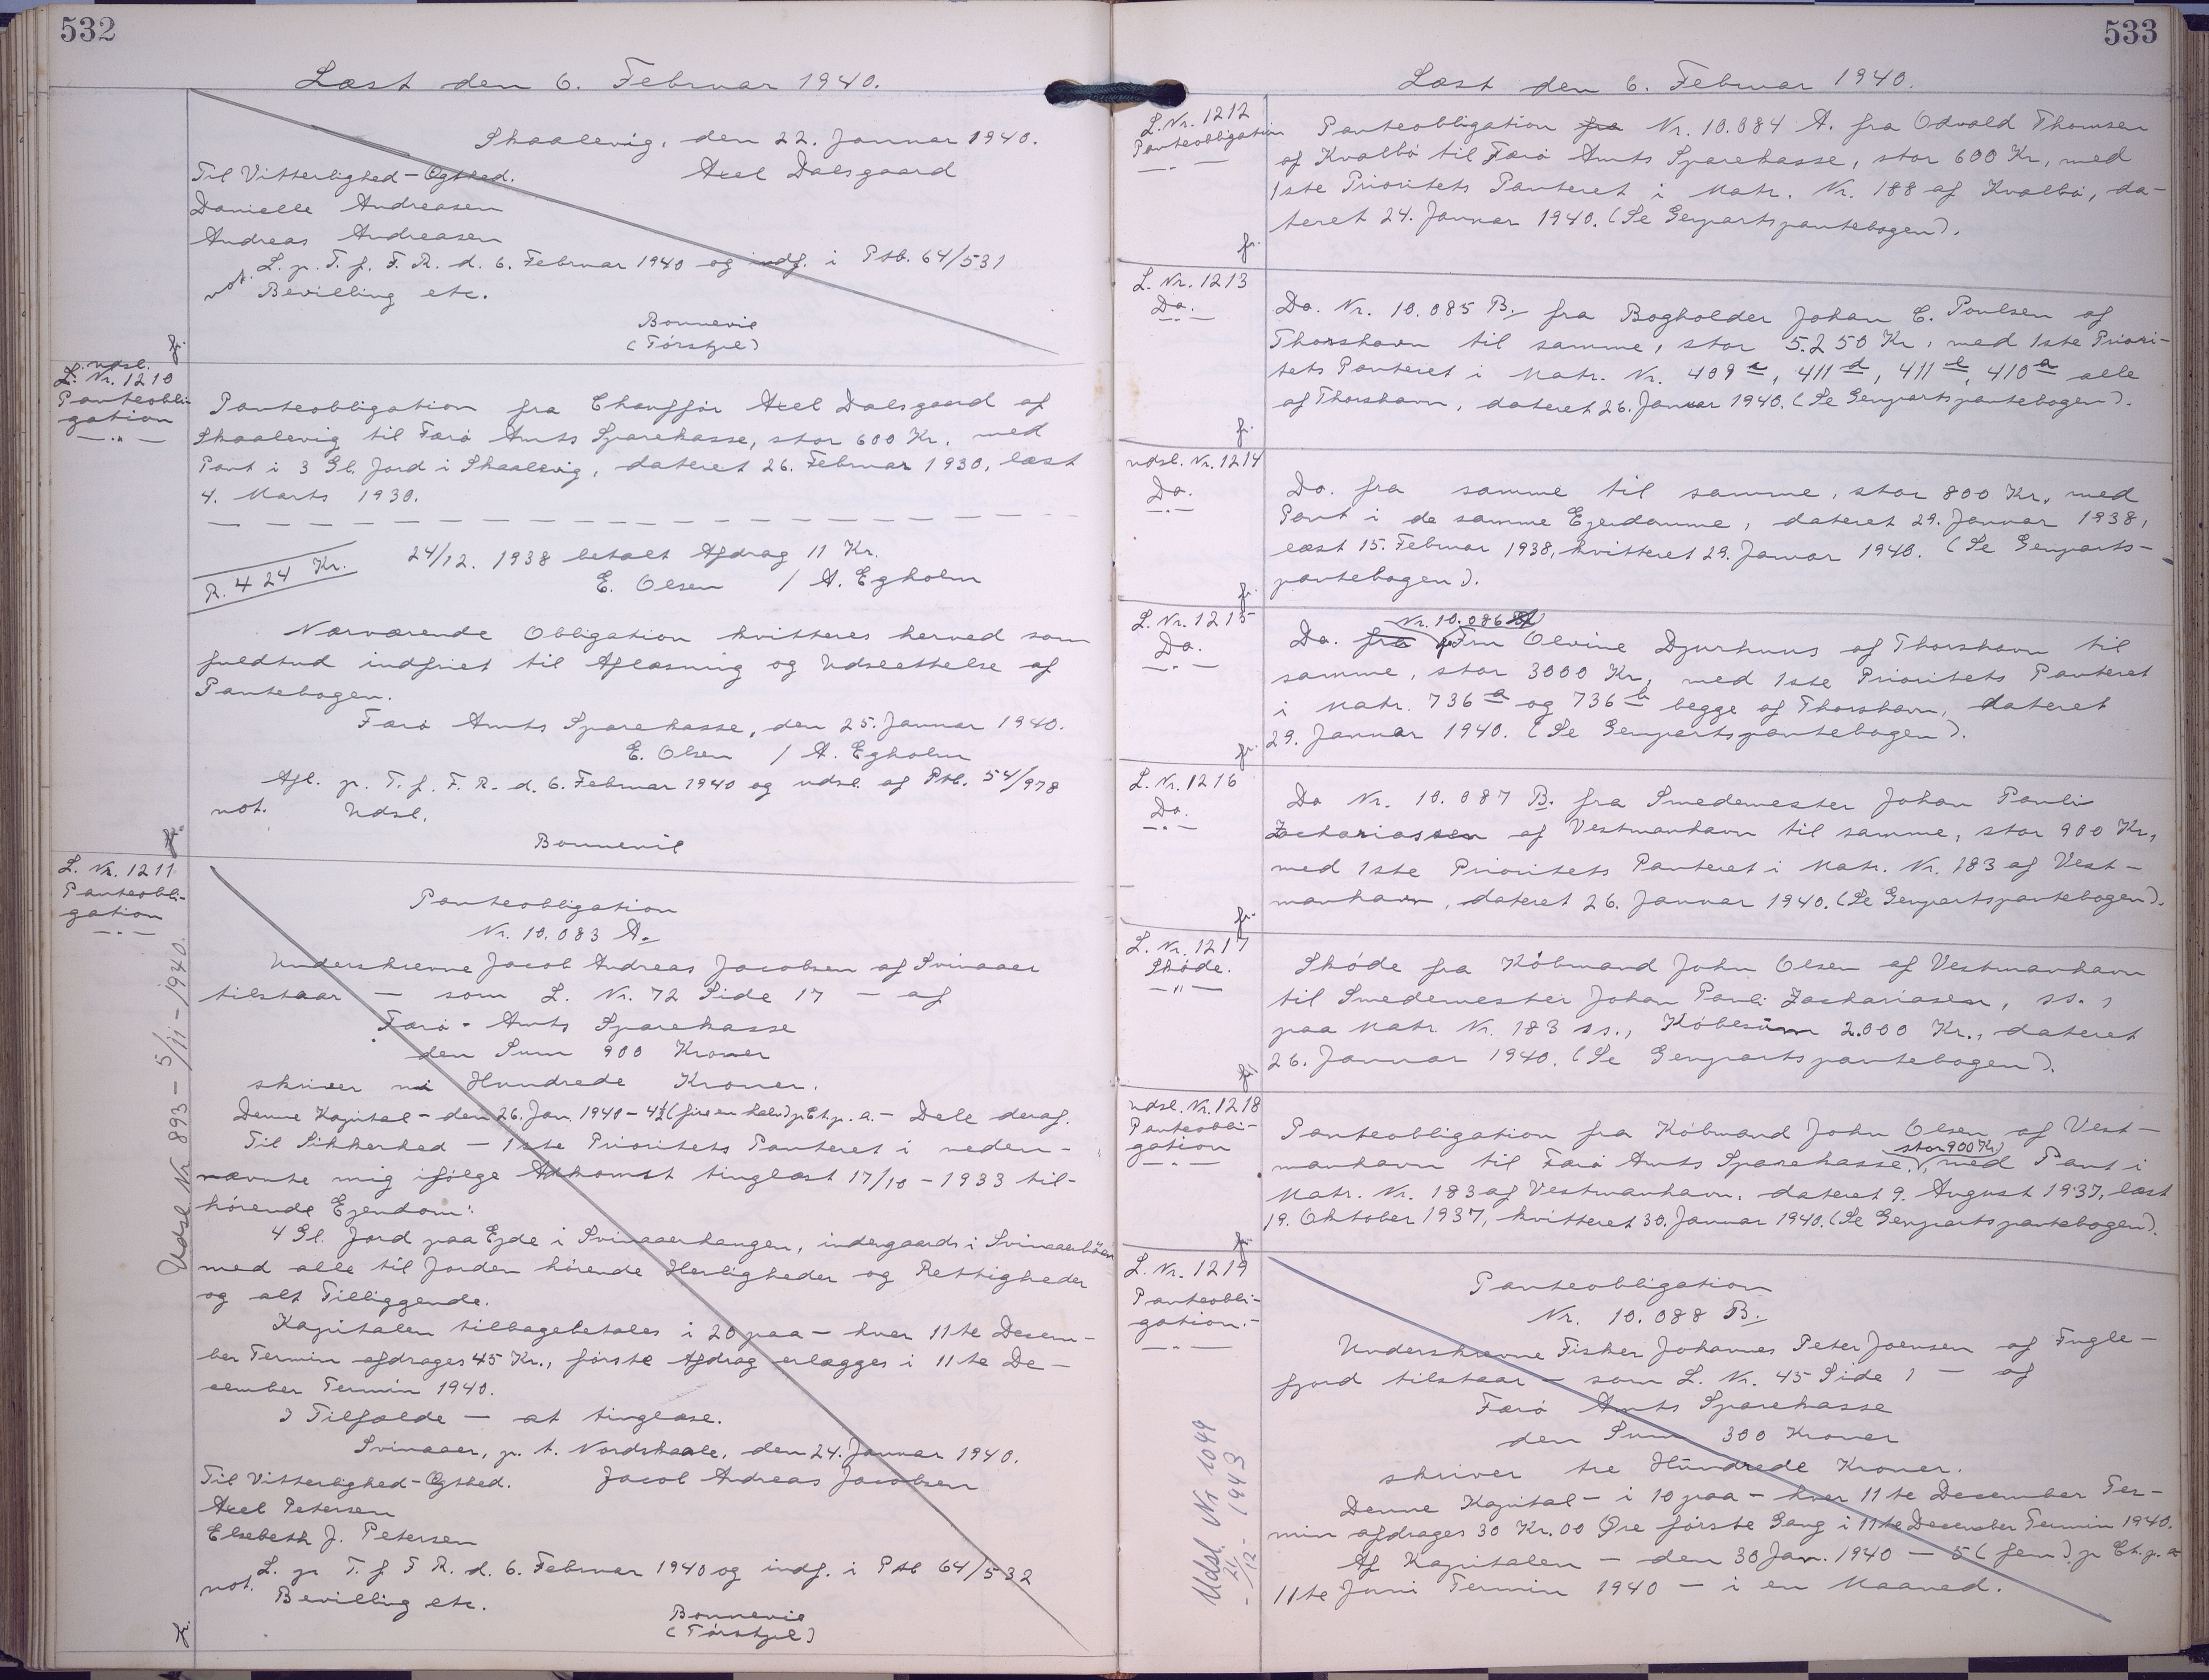 532
Læst den 6. Februar 1940.
Skaalevig, den 22. Januar 1940.
Til Vitterlighed - Ægthed. Axel Dalsgaard
Danielle Andreasen
Andreas Andreasen
L. p. T. f. F. R. d. 6. Februar 1940 og indf. i Ptb. 64/531
not. Bevilling etc.
Bonnevie
(Torskjel)
fr.
udsl.
L. Nr. 1210
Panteobli-
gation
Panteobligation fra Chauffør Axel Dalsgaard af
Skaalevig til Færø Amts Sparekasse, stor 600 Kr., med
Pant i 3 Gl. Jord i Skaalevig, dateret 26. Februar 1930, læst
4. Marts 1930.
24/12. 1938 betalt Afdrag 11 Kr.
R. 424 Kr.
E. Olsen / A. Egholm
Nærværende Obligation kvitteres herved som
fuldtud indfriet til Aflæsning og Udslettelse af
Pantebogen.
Færø Amts Sparekasse, den 25. Januar 1940.
E. Olsen / A. Egholm
Afl. p. T. f. F. R. d. 6. Februar 1940 og udsl. af Ptb. 54/978
not. Udsl.
Bonnevie
fr.
L. Nr. 1211
Panteobli-
gation
Udsl. Nr 893 - 5/11 - 1940.
Panteobligation
Nr. 10.083 A.
Underskrevne Jacob Andreas Jacobsen af Svinaaer
tilstaar — som L. Nr. 72 Side 17 — af
Færø - Amts Sparekasse
den Sum 900 Kroner
skriver ni Hundrede Kroner.
Denne Kapital - den 26. Jan. 1940 - 4½ (fire en halv) p Ct. p. a. - Dele deraf.
Til Sikkerhed — 1ste Prioritets Panteret i neden-
nævnte mig ifølge Adkomst tinglæst 17/10 - 1933 til-
hørende Ejendom:
4 Gl. Jord paa Ejde i Svinaaerhaugen, indergaards i Svinaaerbøen
med alle til Jorden hørende Herligheder og Rettigheder
og alt Tilliggende.
Kapitalen tilbagebetales i 20 paa - hver 11te Decem-
ber Termin afdrages 45 Kr., første Afdrag erlægges i 11te De-
cember Termin 1940.
I Tilfælde — at tinglæse.
Svinaaer, p. t. Nordskaale, den 24. Januar 1940.
Til Vitterlighed - Ægthed. Jacob Andreas Jacobsen
Axel Petersen
Elsebeth J. Petersen
L. p T. f F R. d. 6. Februar 1940 og indf. i Ptb 64/532
not. Bevilling etc.
Bonnevie
(Torskjel)
fr.
533
Læst den 6. Februar 1940.
L. Nr. 1212
Panteobligation
Panteobligation fra Nr. 10.084 A. fra Odvald Thomsen
af Kvalbø til Færø Amts Sparekasse, stor 600 Kr, med
1ste Prioritets Panteret i Matr. Nr. 188 af Kvalbø, da-
teret 24. Januar 1940. (Se Genpartspantebogen).
fr.
L. Nr. 1213
Do.
Do. Nr. 10.085 B. fra Bogholder Johan C. Poulsen af
Thorshavn til samme, stor 5.250 Kr, med 1ste Priori-
tets Panteret i Matr. Nr. 409 c, 411 d, 411 e, 410 a alle
af Thorshavn, dateret 26. Januar 1940. (Se Genpartspantebogen).
fr.
udsl. Nr. 1214
Do.
Do. fra samme til samme, stor 800 Kr, med
Pant i de samme Ejendomme, dateret 29. Januar 1938,
læst 15. Februar 1938, kvitteret 29. Januar 1940. (Se Genparts-
pantebogen).
fr.
L. Nr. 1215
Do.
Nr. 10.086
Do. fra Fru Olvine Djurhuus af Thorshavn til
samme, stor 3000 Kr, med 1ste Prioritets Panteret
i Matr. 736 a og 736 b begge af Thorshavn, dateret
29. Januar 1940. (Se Genpartspantebogen).
fr.
L. Nr. 1216
Do.
Do Nr. 10.087 B. fra Smedemester Johan Pauli
Zachariassen af Vestmanhavn til samme, stor 900 Kr,
med 1ste Prioritets Panteret i Matr. Nr. 183 af Vest-
manhavn, dateret 26. Januar 1940. (Se Genpartspantebogen).
fr.
L. Nr. 1217
Skøde.
Skøde fra Købmand John Olsen af Vestmanhavn
til Smedemester Johan Pauli Zachariasen, ss.,
paa Matr. Nr. 183 ss., Købesum 2.000 Kr., dateret
26. Januar 1940. (Se Genpartspantebogen).
fr.
udsl. Nr. 1218
Panteobli-
gation
Panteobligation fra Købmand John Olsen af Vest-
manhavn til Færø Amts Sparekasse, stor 900 Kr, med Pant i
Matr. Nr. 183 af Vestmanhavn, dateret 9. August 1937, læst
19. Oktober 1937, kvitteret 30. Januar 1940. (Se Genpartspantebogen).
fr.
L. Nr. 1219
Panteobli-
gation.
Udsl. Nr 1099
21/12 - 1943
Panteobligation
Nr. 10.088 B.
Underskrevne Fisker Johannes Peter Joensen af Fugle-
fjord tilstaar — som L. Nr. 45 Side 1 — af
Færø Amts Sparekasse
den Sum 300 Kroner
skriver tre Hundrede Kroner.
Denne Kapital - i 10 paa - hver 11te December Ter-
min afdrages 30 Kr. 00 Øre første Gang i 11te December Termin 1940.
Af Kapitalen — den 30 Jan. 1940 — 5 (fem) p Ct. p. a
11te Juni Termin 1940 — i en Maaned.